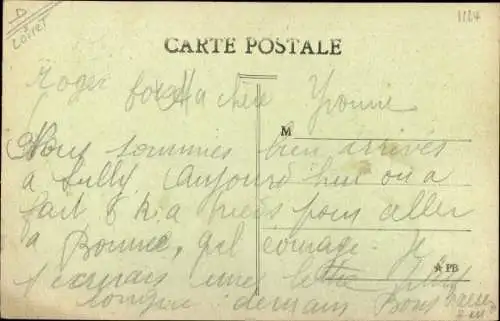 D
LOIRET
1124
CARTE POSTALE
Roger Ma chère Yvonne
M
Nous sommes bien arrivés
à Sully. Aujourd'hui on a
fait 8 k. à pieds pour aller
à Bonnée, quel courage. Je
t'écrirais une lettre plus
★ PB
longue demain Bons baisers